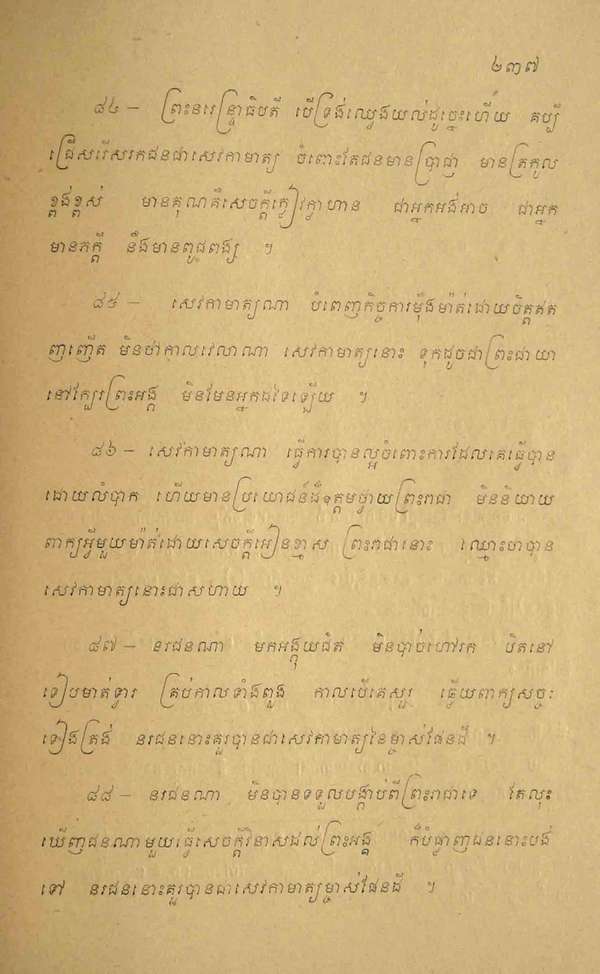 ២៣៧
៨៤ – ព្រះនរេន្ទ្រាធិបតី បើទ្រង់ឈ្វេងយល់ដូច្នេះហើយ គប្បី
ជ្រើសរើសរកជនជាសេវកាមាត្យ ចំពោះតែជនមានប្រាជ្ញា មានត្រកូល
ខ្ពង់ខ្ពស់ មានគុណគឺសេចក្ដីក្លៀវក្លាហាន ជាអ្នកអង់អាច ជាអ្នក
មានភក្ដី នឹងមានពូជពង្ស ។
៨៥ – សេវកាមាត្យណា បំពេញកិច្ចការម៉ឺងម៉ាត់ដោយចិត្តឥត
ញញើត មិនថាកាលវេលាណា សេវកាមាត្យនោះ ទុកដូចជាព្រះជាយា
នៅក្បែរព្រះអង្គ មិនមែនអ្នកដទៃឡើយ ។
៨៦ – សេវកាមាត្យណា ធ្វើការបានល្អចំពោះការដែលគេធ្វើបាន
ដោយលំបាក ហើយមានប្រយោជន៍ដ៏ឧត្តមថ្វាយព្រះរាជា មិននិយាយ
ពាក្យអ្វីមួយម៉ាត់ដោយសេចក្ដីអៀនខ្មាស ព្រះរាជានោះ ឈ្មោះថាបាន
សេវកាមាត្យនោះជាសហាយ ។
៨៧ – នរជនណា មកអង្គុយជិត មិនបាច់ហៅរក បិតនៅ
ទៀបមាត់ទ្វារ គ្រប់កាលទាំងពួង កាលបើគេសួរ ឆ្លើយពាក្យសច្ចៈ
ទៀងត្រង់ នរជននោះគួរបានជាសេវកាមាត្យនៃម្ចាស់ផែនដី ។
៨៨ – នរជនណា មិនបានទទួលបង្គាប់ពីព្រះរាជាទេ តែលុះ
ឃើញជនណាមួយធ្វើសេចក្ដីវិនាសដល់ព្រះអង្គ ក៏បំផ្លាញជននោះបង់
ទៅ នរជននោះគួរបានជាសេវកាមាត្យម្ចាស់ផែនដី ។